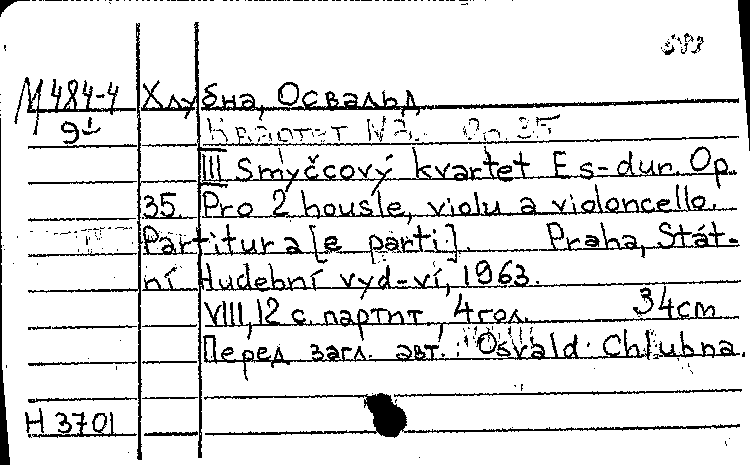 593
М484-4 Хлубна, Освальд
91
Квартет №3. Op. 35
III Smyčcový kvartet Es-dur. Op.
35 Pro 2 housle, violu a violoncello.
Partitura [e parti]. Praha, Stát-
ní Hudební vyd-ví, 1963.
VIII, 12 с. партит., 4 гол. 34cm
Перед загл. авт.: Osvald Chlubna.
Н 3701